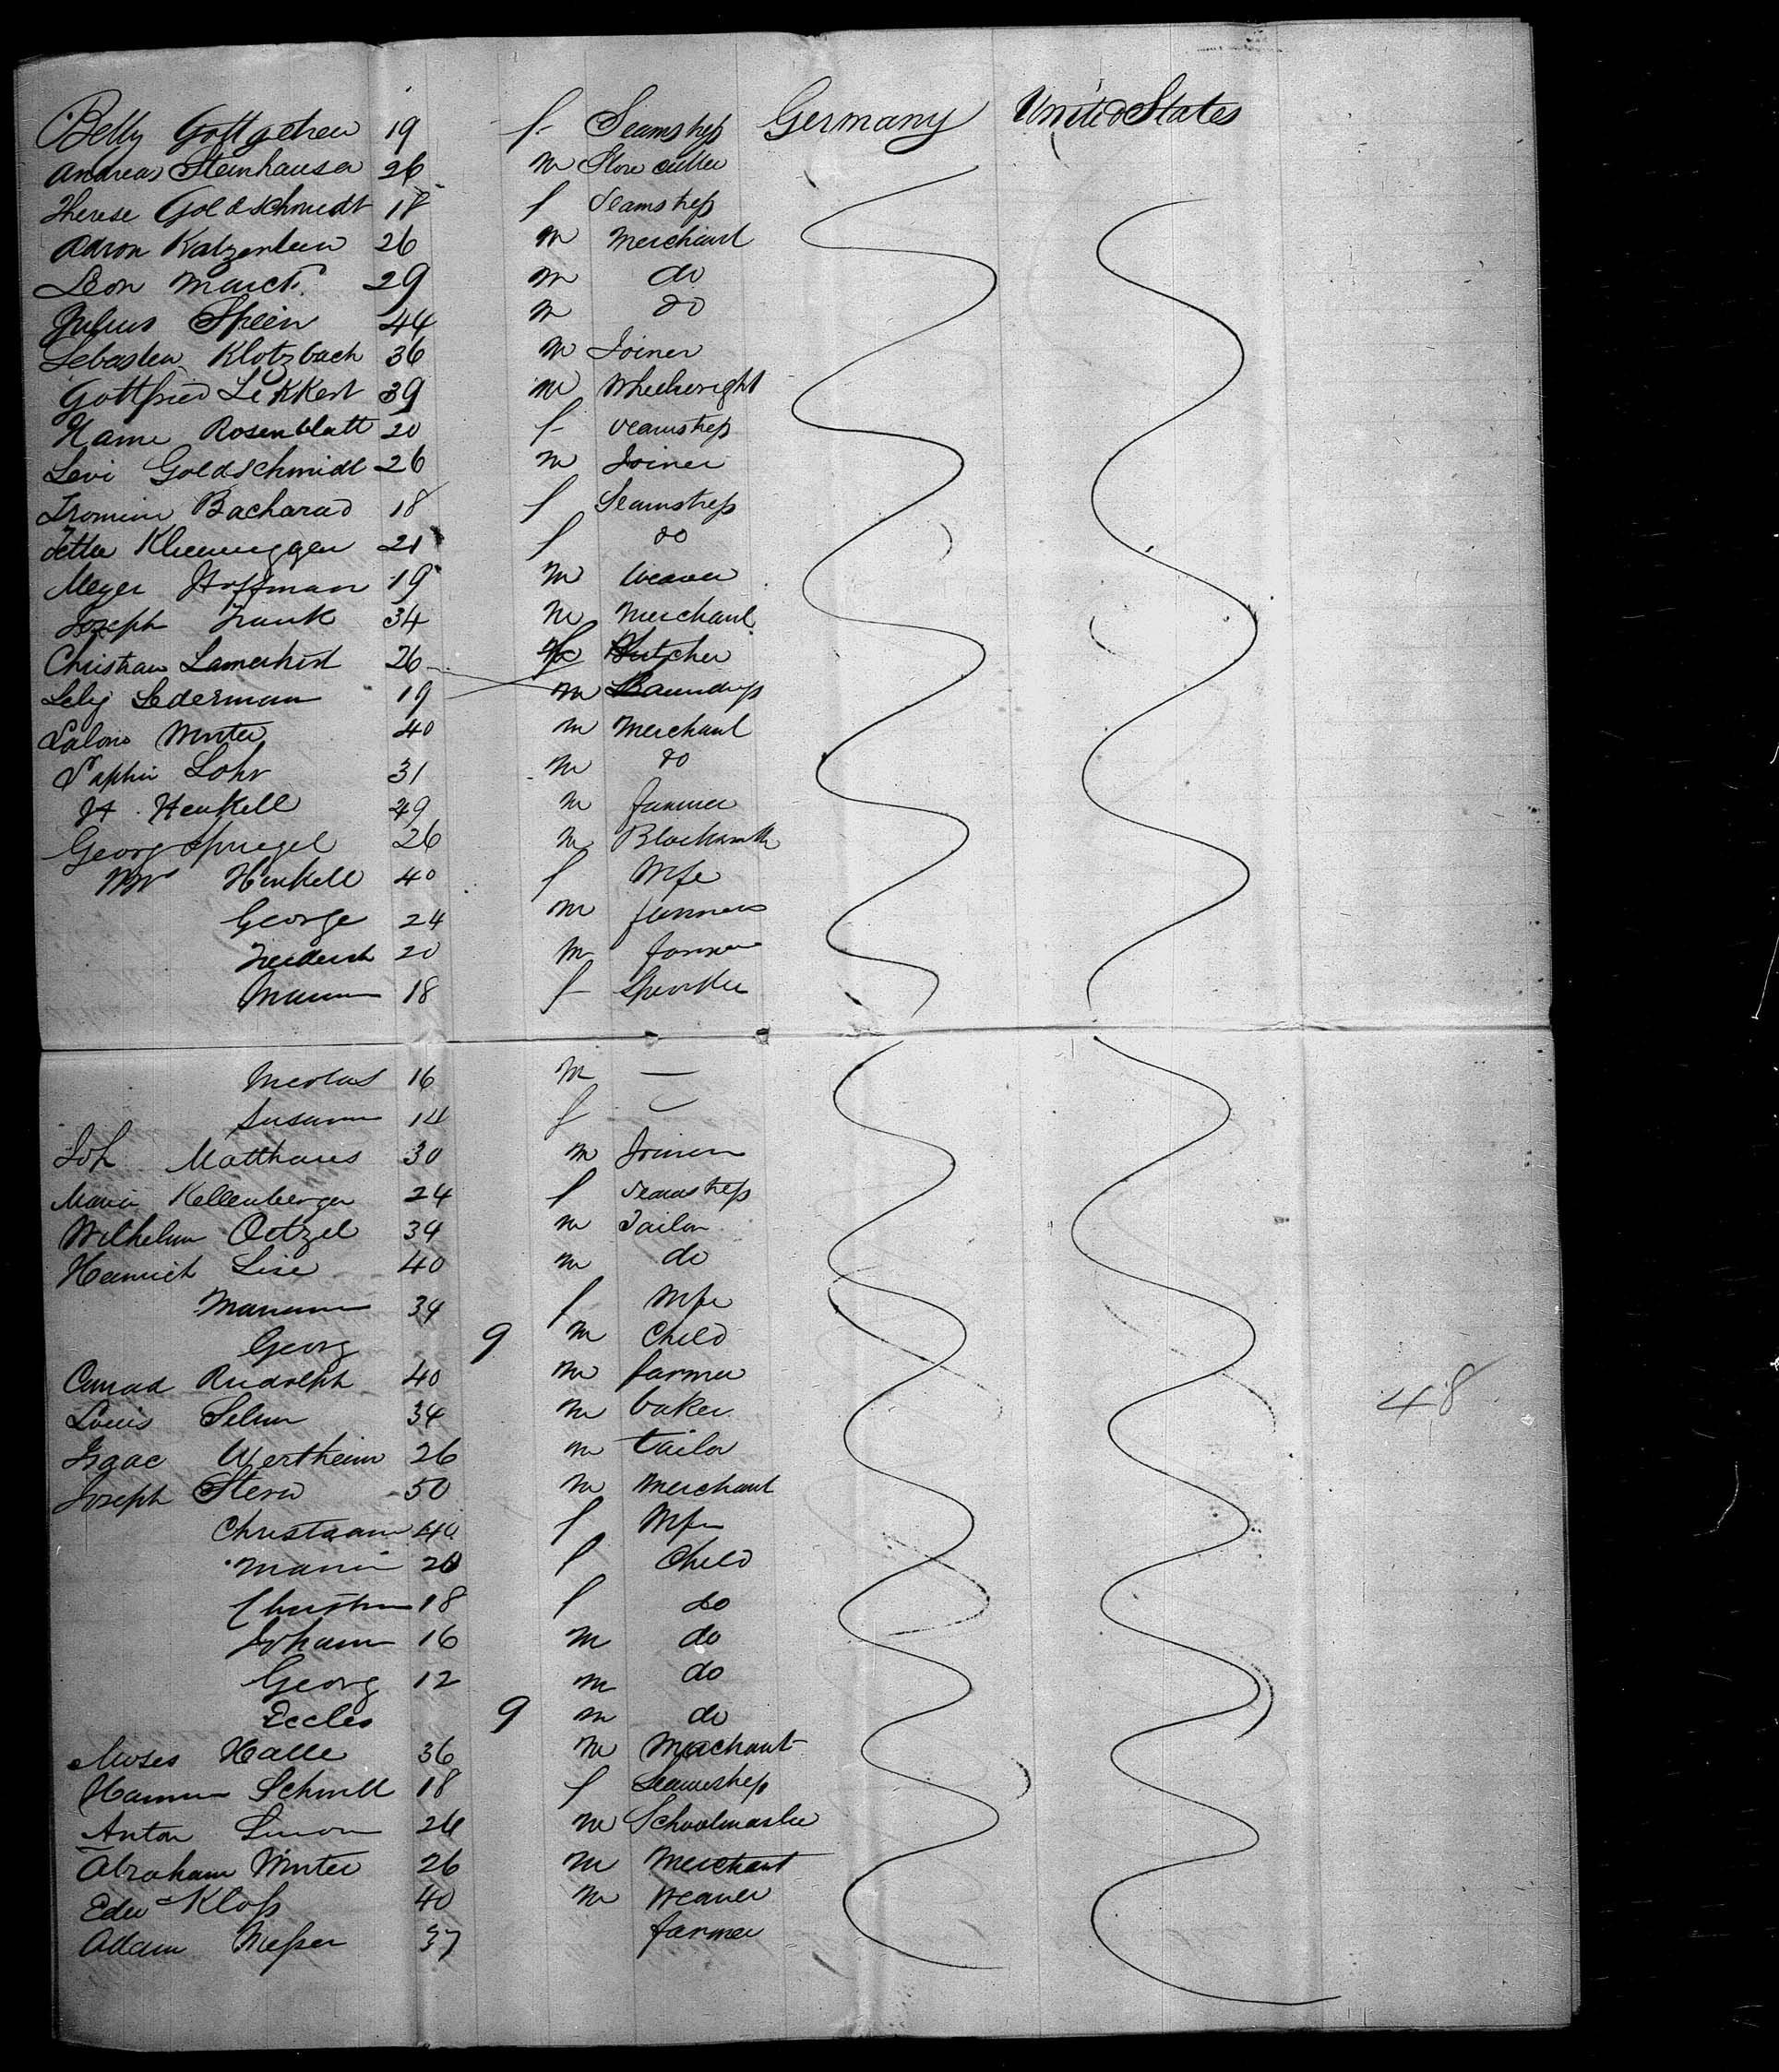 Betty Gottgetreu 19 f Seamstress Germany United States
Andreas Steinhauser 26 m Stone cutter
Therese Goldschmidt 18 f Seamstress
Aaron Katzenstein 26 m Merchant
Leon 29 m do
Julius 44 m do
Sebastien Klotzbach 36 m Joiner
Gottfried Lekkert 39 m Wheelwright
Hanne Rosenblatt 20 f seamstress
Levi Goldschmidt 26 m Joiner
Bacharad 18 f Seamstress
21 f do
Meyer Hoffman 19 m Weaver
Joseph Frank 34 m Merchant
Christian 26 Butcher
Lederman 19 m
40 m Merchant
Lohr 31 m do
H. Henkell 49 m farmer
Georg Spiegel 26 m Blacksmith
Mrs Henkell 40 f Wife
George 24 m farmer
Frederich 20 m farmer
18 f Spinster
Nicolas 16 m —
Susanna 14 f —
Joh Matthaus 30 m Joiner
Maria Kellenberger 24 f seamstress
Wilhelm Oetzel 34 m Tailor
Heinrich Lise 40 m do
34 f Wife
Georg 9 m Child
Conrad Rudolph 40 m farmer
Louis 34 m baker
Isaac Wertheim 26 m tailor
Joseph Stern 50 m Merchant
40 f Wife
Maria 20 f Child
18 f do
Johann 16 m do
Georg 12 m do
Eccles 9 m do
Moses Halle 36 m Merchant
18 f Seamstress
Anton Simon 26 m Schoolmaster
Abraham Winter 26 m Merchant
Kloss 40 m weaver
Adam Messer 37 farmer
48